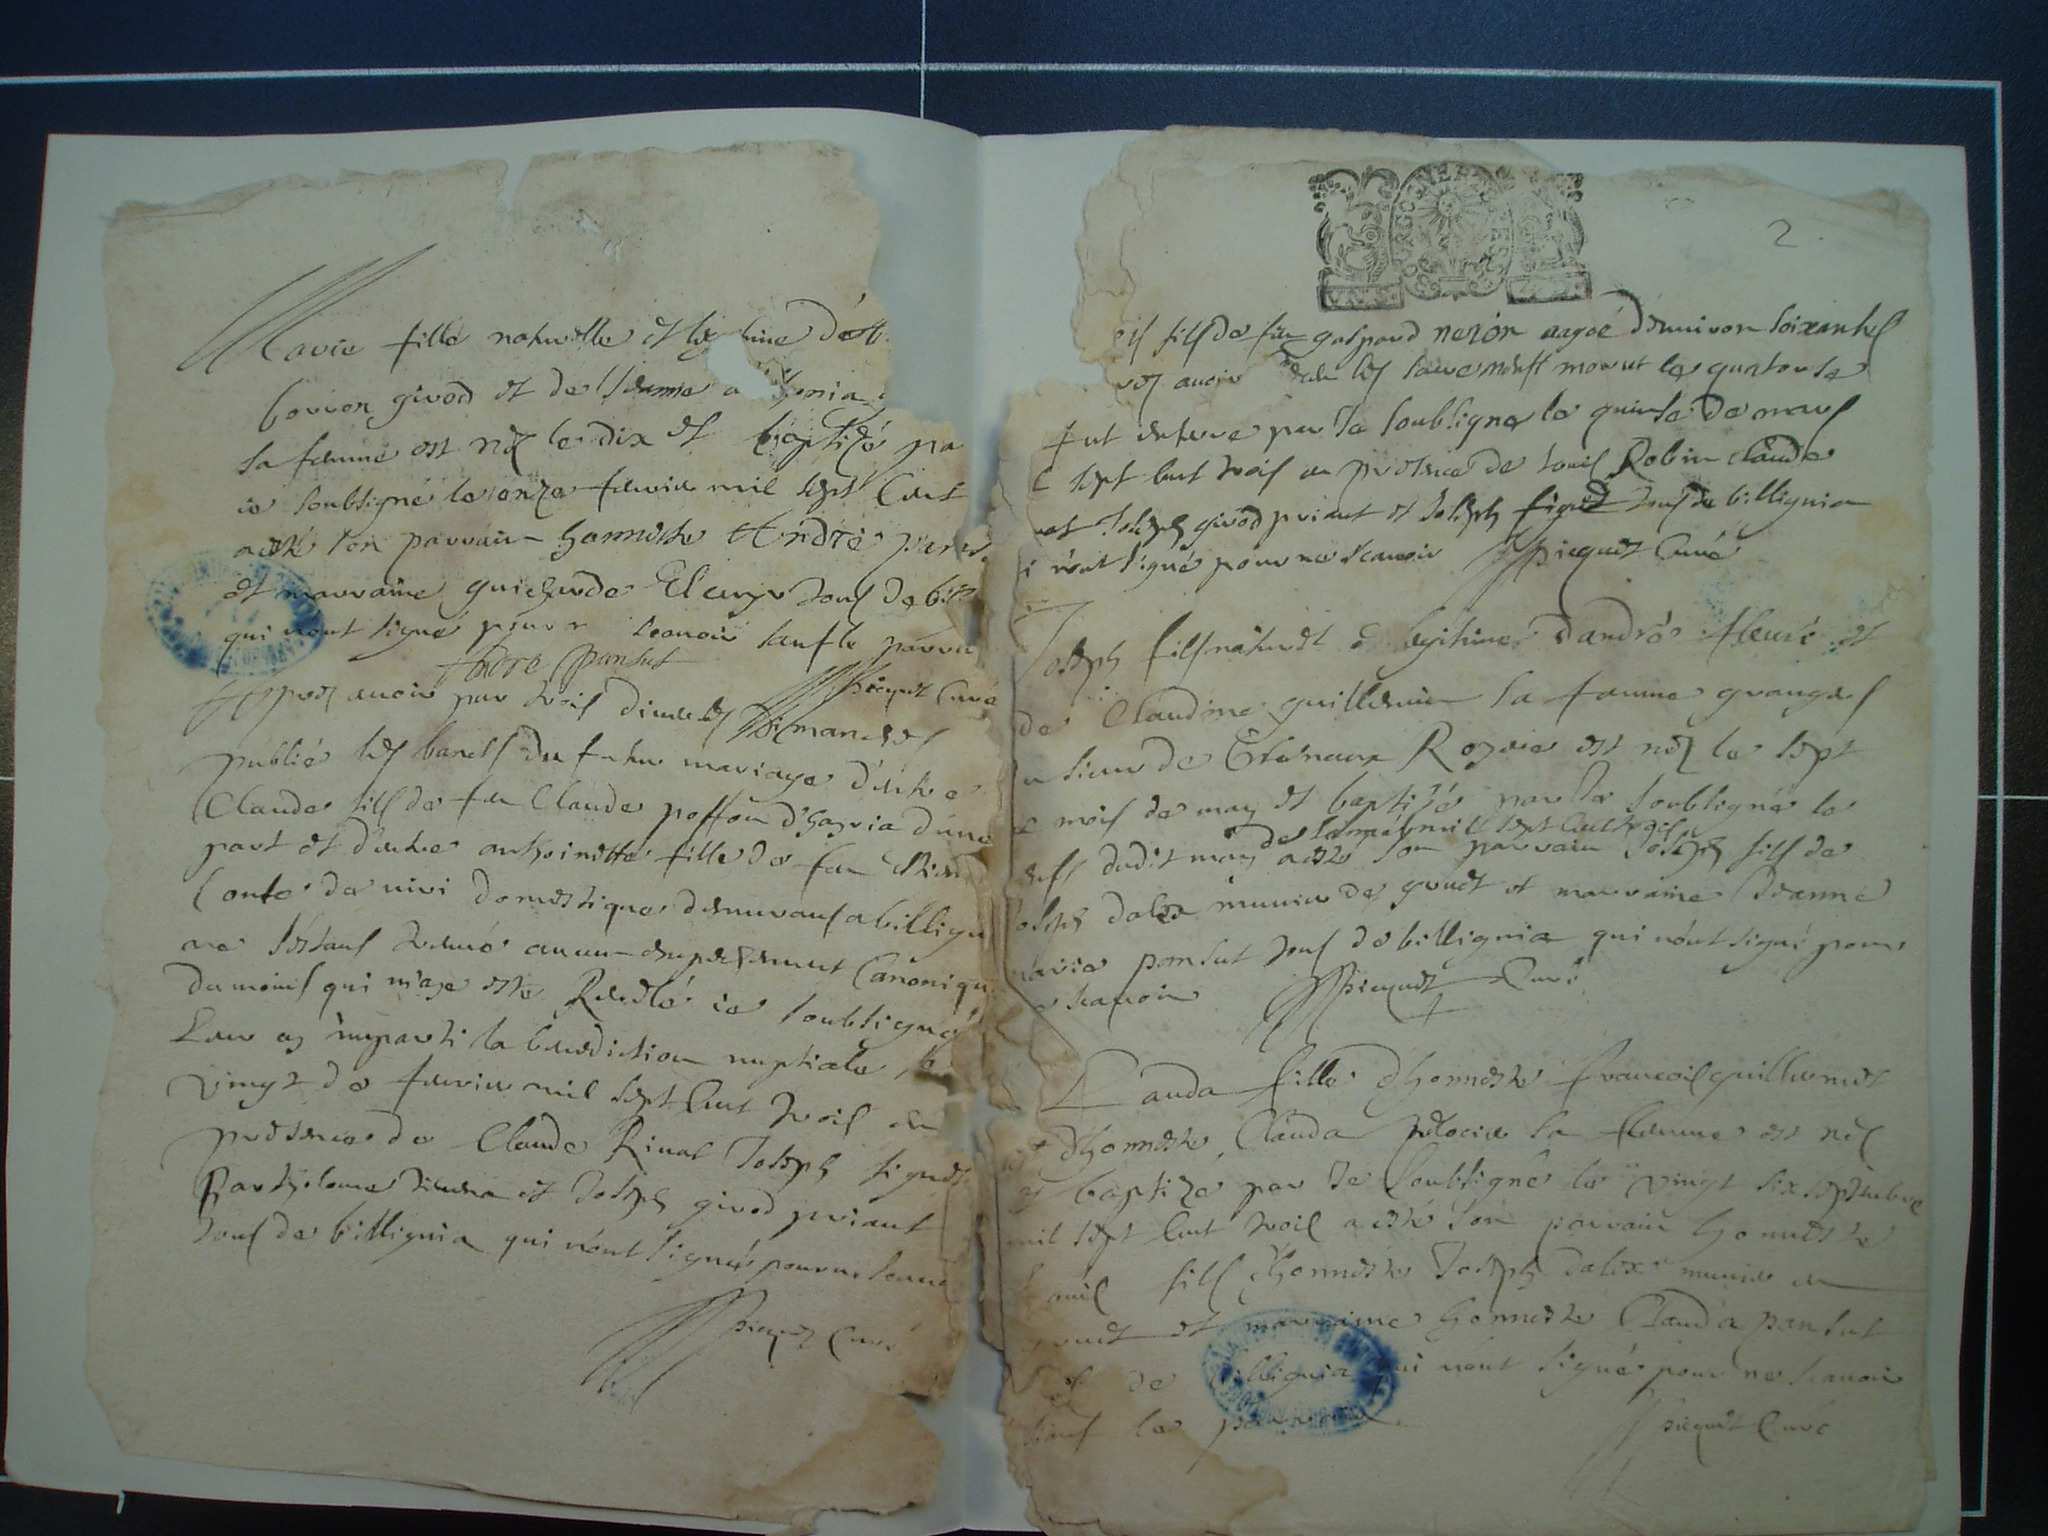 Marie fille naturelle et
borron girod et de Jeanne
sa femme est nez le dix et baptizé pa
ie soubsigné le onze feuvrier mil sept cent
a esté son parrain honneste André pansut
et marraine guicharde fleury tous de bil
qui nont signé pour scauoir sauf le parra
Andre pansut
picquet Curé
Appres auoir par trois diuerses Dimanches
publié les bancs du futur mariage d'entre
Claude fils de feu Claude poffon d'hauria d'une
part et d'entre anthoinette fille de feu
Conte de uiri domestique demeurant a billigni
ne s'estant treuué aucun empeschement Canonique
du moins qui m'aye esté Reuelé ie soubsigné
Leur ay imparti la benediction nuptiale le
vingt de feuvrier mil sept Cent trois en
presence de Claude Rinal Joseph figuet
Barthelome et Joseph girod priant
tous de billignia qui n'ont signés pour ne scauoi
picquet Curé
2
fils de feu gaspard neron aagé d'enuiron soixante
auoir les sacrements mourut le quatorze
fut enterré par Je soubsigne le quinze de mars
sept cent trois en presence de Robin Claude
Joseph girod priant et Joseph figuet tous de billignia
n'ont signé pour ne scauoir picquet Curé
Joseph fils naturel et legitime d'andré fleuri et
de Claudine guillermin sa femme granger
sieur de est nez le sept
mois de may et baptizé par Je soubsigné le
de l'année mil sept cent trois
dudit may a esté son parrain Joseph fils de
Joseph dalex munier de gruet et marraine Jeanne
marie pansut tous de billignia qui n'ont signé pour
scauoir picquet Curé
Clauda fille d'honneste francois guillermet
et d'honneste Clauda sa femme est nez
et baptize par Je soubsigne le vingt six septembre
mil sept cent trois a esté son parrain honneste
fils d'honneste Joseph dalex munier
gruet et marraine honneste Clauda pansut
de billignia qui nont signé pour ne scauoir
sauf le parrain
picquet Curé